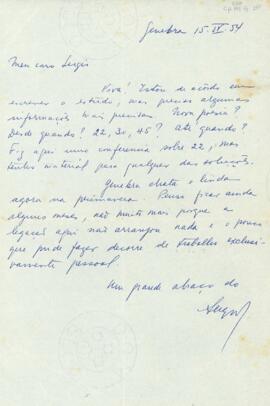 Genebra 15.IV.54
Meu caro Sergio
Viva! Estou de acôrdo em
escrever o estudo, mas preciso algumas
informações mais precisas. Nova poesia?
Desde quando? 22, 30, 45? Até quando?
Fiz aqui uma conferencia sobre 22, mas
tenho material para qualquer das soluções.
Genebra chata e linda
agora na primavera. Penso ficar ainda
alguns meses, não muito mais porque a
legação aqui não arranjou nada e o pouco
que pude fazer decorre de trabalho exclusi-
vamente pessoal
Um grande abraço do